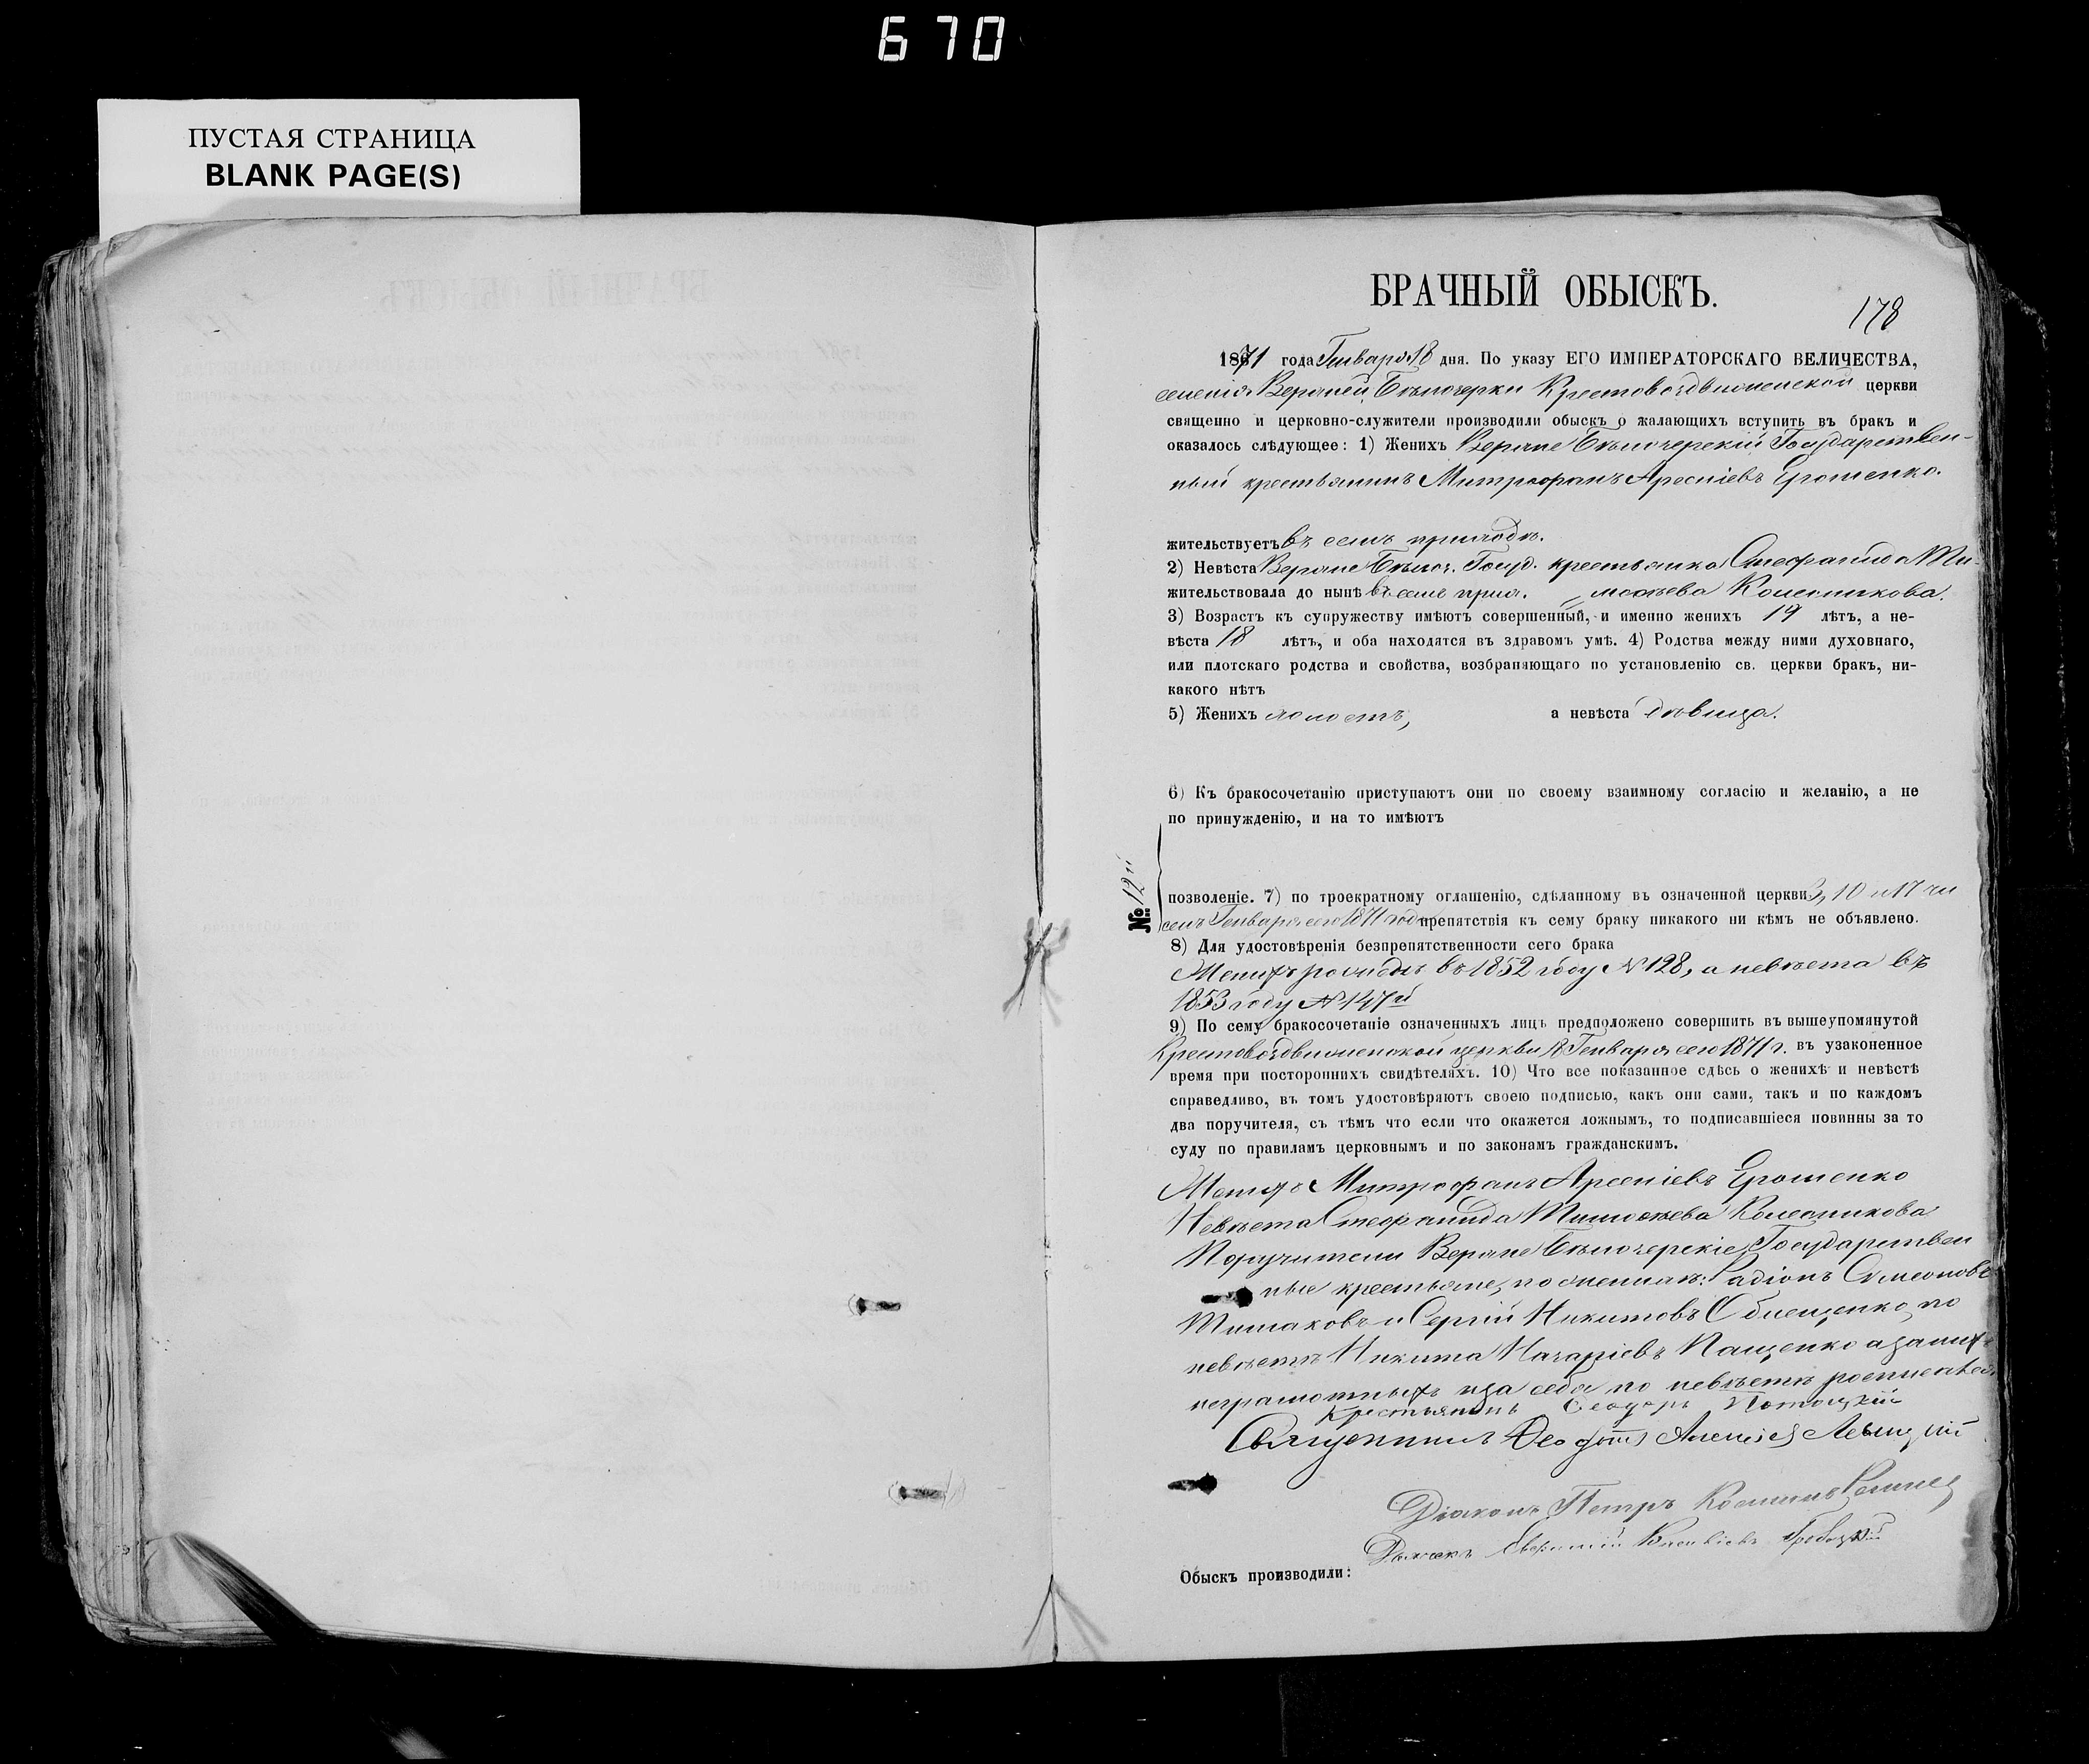 670
ПУСТАЯ СТРАНИЦА
BLANK PAGE(S)
БРАЧНЫЙ ОБЫСКЪ.
178
1871 года Генваря 18 дня. По указу ЕГО ИМПЕРАТОРСКАГО ВЕЛИЧЕСТВА,
селенія Верхней Бѣлозерки Крестовоздвиженской церкви
священно и церковно-служители производили обыскъ о жалающихъ вступить въ бракъ и
оказалось слѣдующее: 1) Женихъ Верхне Бѣлозерскій Государствен-
ный крестьянинъ Митрофанъ Арсеніевъ Ерошенко.
жительствуетъ въ семъ приходѣ.
2) Невѣста Верхне Бѣлоз. Госуд. крестьянка Стефанида Ти-
жительствовала до нынѣ въ семъ прих. мофѣева Колесникова.
3) Возрастъ къ супружеству имѣютъ совершенный, и именно женихъ 19 лѣтъ, а не-
вѣста 18 лѣтъ, и оба находятся въ здравомъ умѣ. 4) Родства между ними духовнаго,
или плотскаго родства и свойства, возбраняющаго по установленію св. церкви бракъ, ни-
какого нѣтъ
5) Женихъ холостъ, а невѣста дѣвица.
6) Къ бракосочетанію приступаютъ они по своему взаимному согласію и желанію, а не
по принужденію, и на то имѣютъ
№ 12й
позволеніе. 7) по троекратному оглашенію, сдѣланному въ означенной церкви 3, 10 и 17 чи
селъ Генваря сего 1871 года препятствія къ сему браку никакого ни кѣмъ не объявлено.
8) Для удостовѣренія безпрепятственности сего брака
Женихъ родился въ 1852 году № 128, а невѣста въ
1853 году № 147й
9) По сему бракосочетаніе означенныхъ лицъ предположено совершить въ вышеупомянутой
Крестовоздвиженской церкви 18 Генваря сего 1871 г. въ узаконенное
время при постороннихъ свидѣтеляхъ. 10) Что все показанное сдѣсь о женихѣ и невѣстѣ
справедливо, въ томъ удостовѣряютъ своею подписью, какъ они сами, такъ и по каждомъ
два поручителя, съ тѣмъ что если что окажется ложнымъ, то подписавшіеся повинны за то
суду по правиламъ церковнымъ и по законамъ гражданскимъ.
Женихъ Митрофанъ Арсеніевъ Ерошенко
Невѣста Стефанида Тимофѣева Колесникова
Поручители Верхне Бѣлозерскіе Государствен
ные крестьяне, по женихѣ: Радіонъ Симеоновъ
и Сергій Никитовъ по
невѣстѣ Никита Назаріевъ Пащенко а за них
неграмотныхъ и за себя по невѣстѣ росписался
Крестьянинъ Феодоръ
Священникъ Левицкій
Діаконъ Петръ
Обыскъ производили: